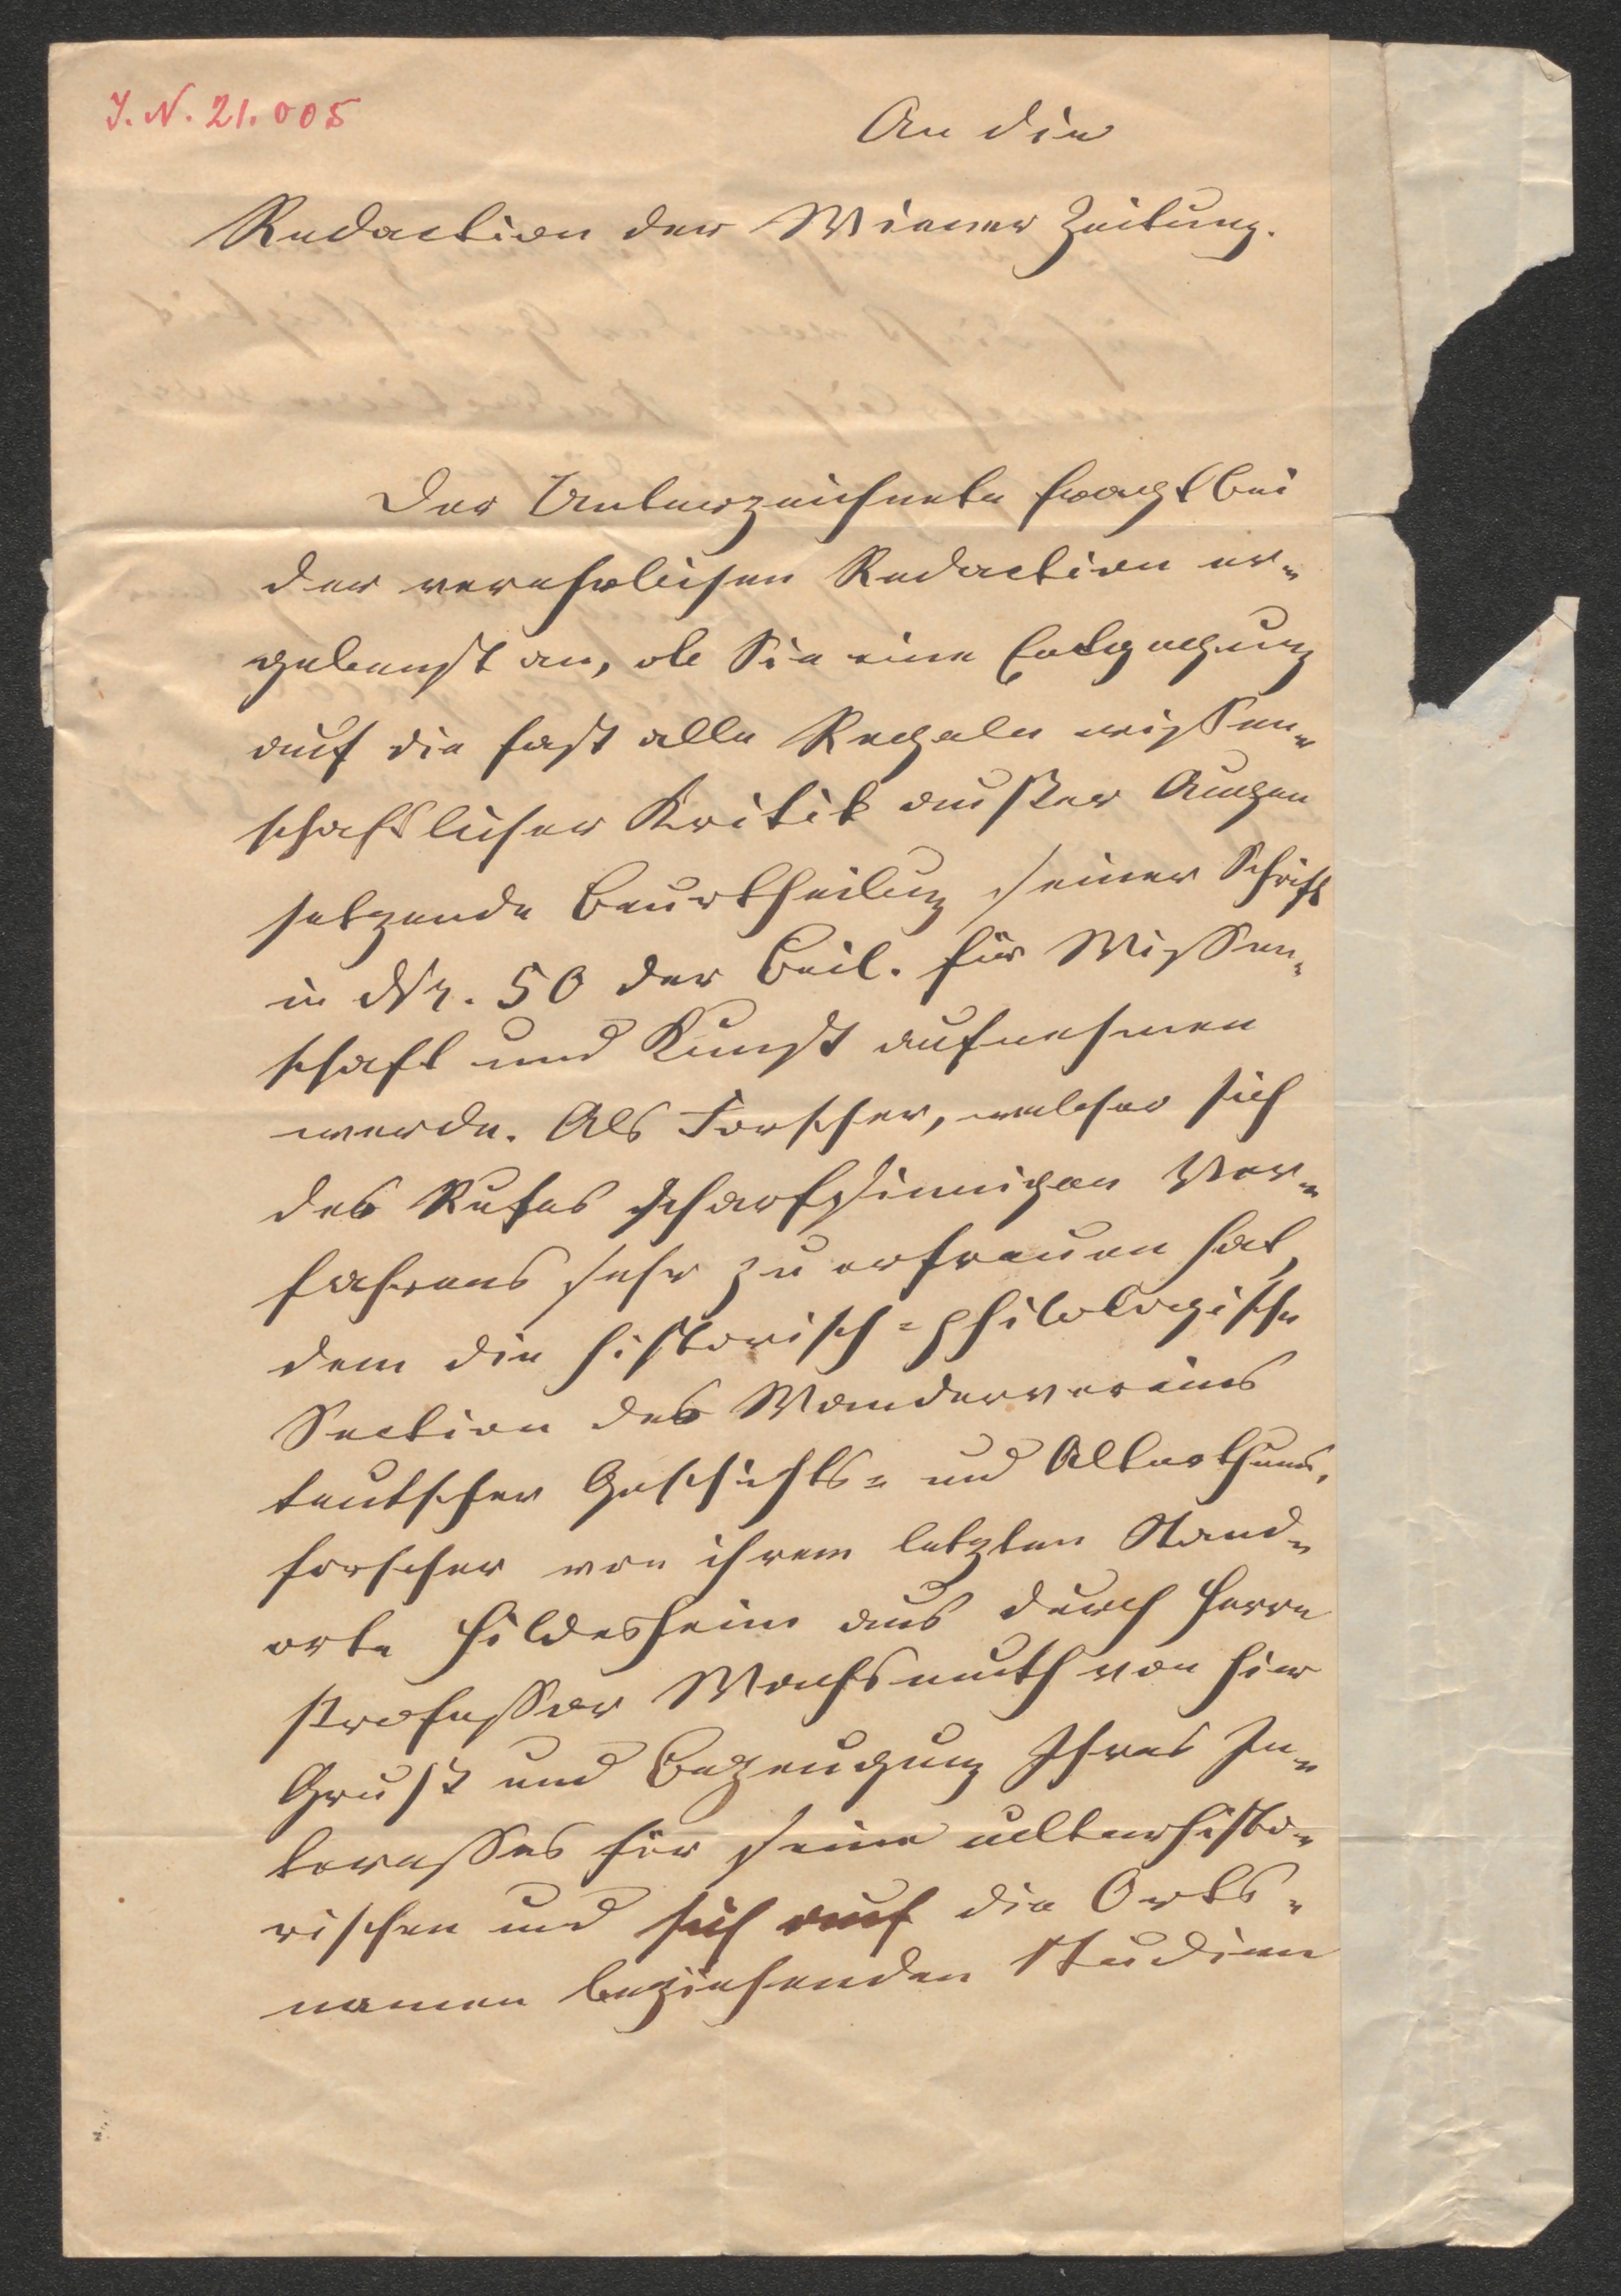 I. N. 21.005
An die
Redaction der Wiener Zeitung.
Der Unterzeichnete fragt bei
der verehrlichen Redaction er-
gebenst an, ob Sie eine Entgegnung
auf die fast alle Regeln wissen-
schaftlicher Kritik außer Augen
setzende Beurtheilung seiner Schrift
in Nr. 50 der Beil. für Wissen-
schaft und Kunst aufnehmen
werde. Als Forscher, welcher sich
des Rufes scharfsinnigen Ver-
fahrens sehr zu erfreuen hat,
dem die historisch-philologische
Section des Wandervereins
teutscher Geschichts- und Alterthums-
forscher von ihrem letzten Stand-
orte Hildesheim aus durch Herrn
Professor Wachsmuth von hier
Gruß und Bezeugung Ihres In-
teresses für seine culturhisto-
rischen und sich auf die Orts-
namen beziehenden Studien